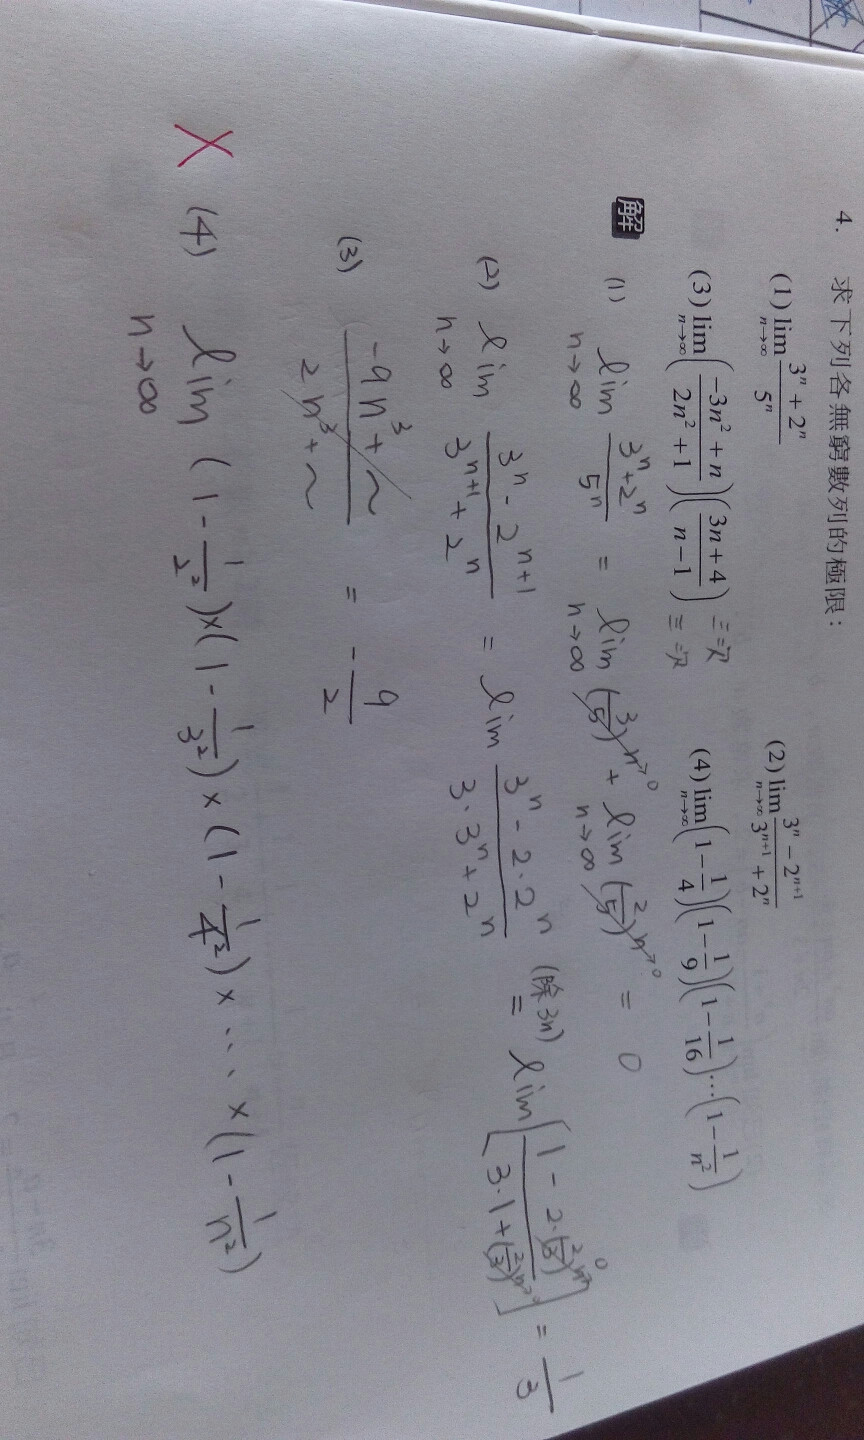 4. 求下列各無窮數列的極限：
(1) lim n→∞ (3^n + 2^n)/5^n (2) lim n→∞ (3^n − 2^(n+1))/(3^(n+1) + 2^n)
(3) lim n→∞ ((−3n² + n)/(2n² + 1))((3n + 4)/(n − 1)) 三次 三次 (4) lim n→∞ (1 − 1/4)(1 − 1/9)(1 − 1/16)⋯(1 − 1/n²)
解 (1) lim n→∞ (3^n + 2^n)/5^n = lim n→∞ (3/5)^n→0 + lim n→∞ (2/5)^n→0 = 0
(2) lim n→∞ (3^n − 2^(n+1))/(3^(n+1) + 2^n) = lim (3^n − 2·2^n)/(3·3^n + 2^n) (除3n) = lim [(1 − 2·(2/3)^n→0)/(3·1 + (2/3)^n→0)] = 1/3
(3) (−9n³ + ~)/(2n³ + ~) = −9/2
X (4) lim n→∞ (1 − 1/2²)×(1 − 1/3²)×(1 − 1/4²)×⋯×(1 − 1/n²)